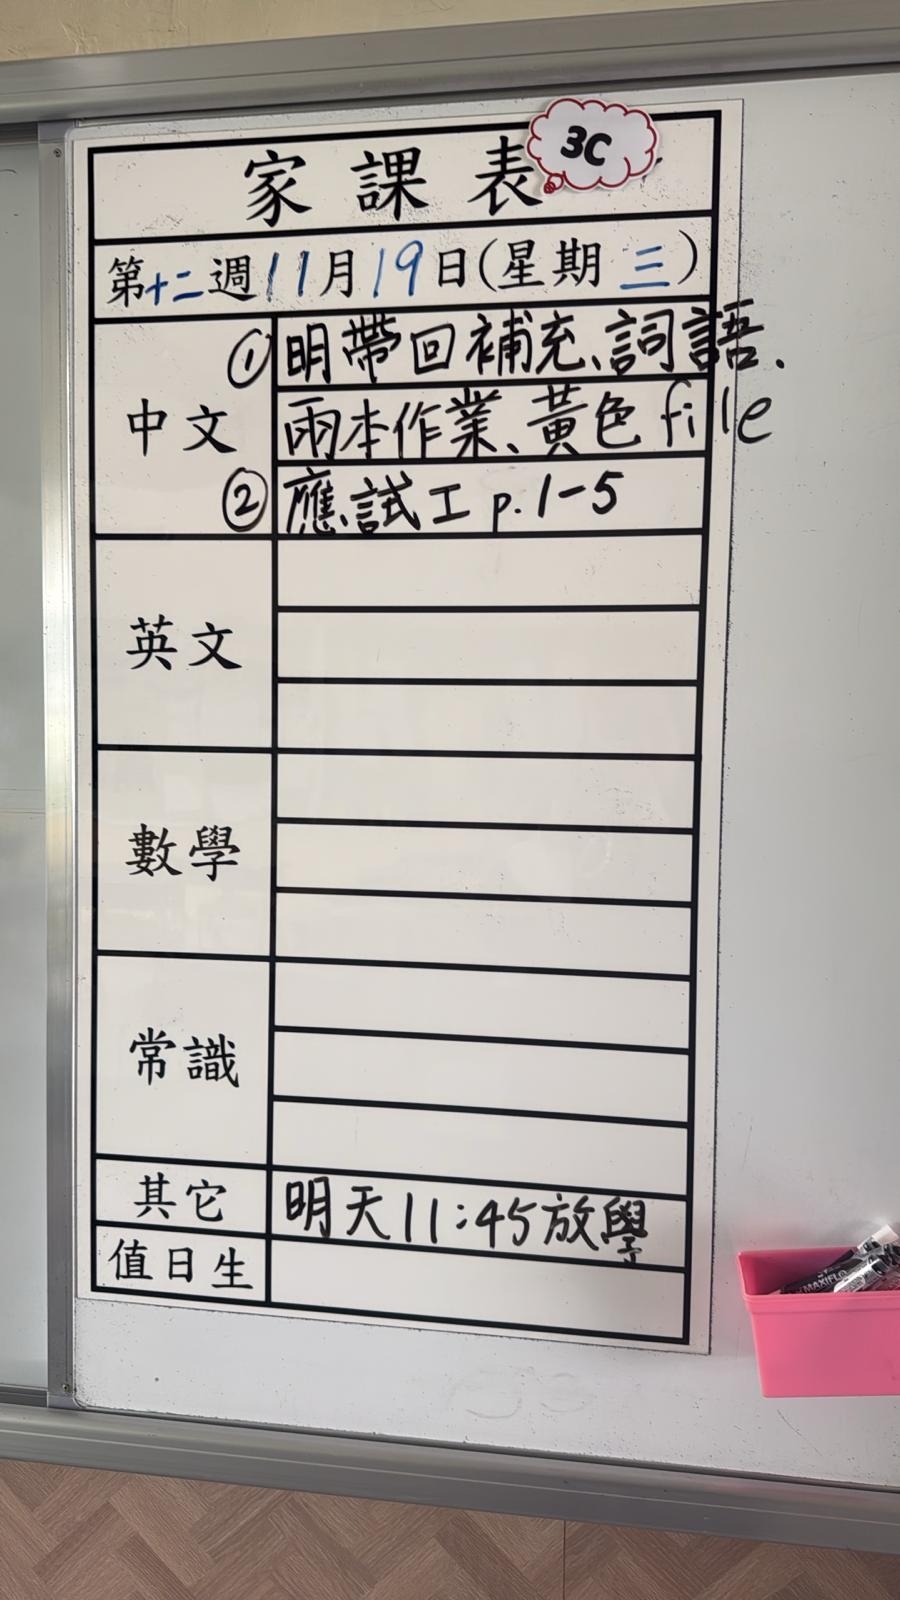 家課表 3C
第十二週11月19日(星期三)
中文
①明帶回補充、詞語、
兩本作業、黃色file
②應試工p.1-5
英文
數學
常識
其它 明天11:45放學
值日生
MAXIFLO